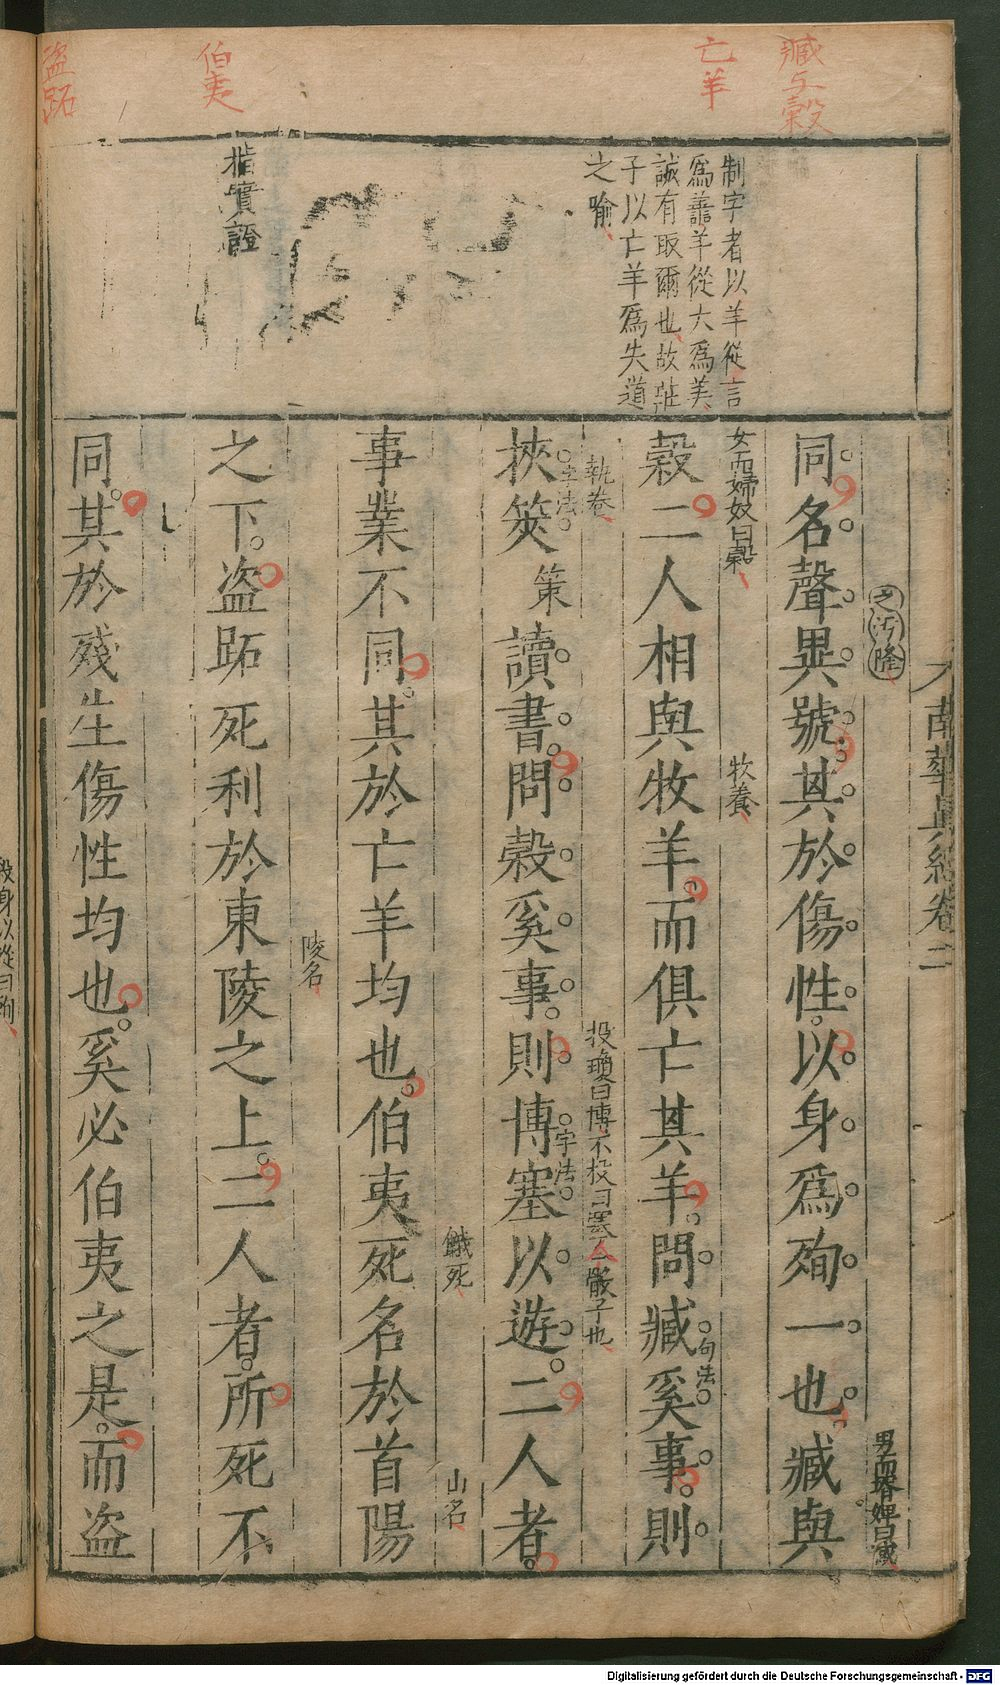 臧與穀
亡羊
伯夷
盜跖
制字者以羊從言
爲譱羊從大爲美
誠有取爾也故莊
子以亡羊爲失道
之喻
指實證
南華眞經卷二
之汚隆
男而壻婢曰臧
同名聲異號其於傷性以身爲殉一也臧與
女而婦奴曰穀
牧養
穀二人相與牧羊而俱亡其羊問臧奚事則
句法
執卷
投瓊曰博不投曰塞
骰子也
挾筴策讀書問穀奚事則博塞以遊二人者
字法
字法
餓死
山名
事業不同其於亡羊均也伯夷死名於首陽
陵名
之下盜跖死利於東陵之上二人者所死不
同其於殘生傷性均也奚必伯夷之是而盜
殺身以從曰殉
Digitalisierung gefördert durch die Deutsche Forschungsgemeinschaft - DFG